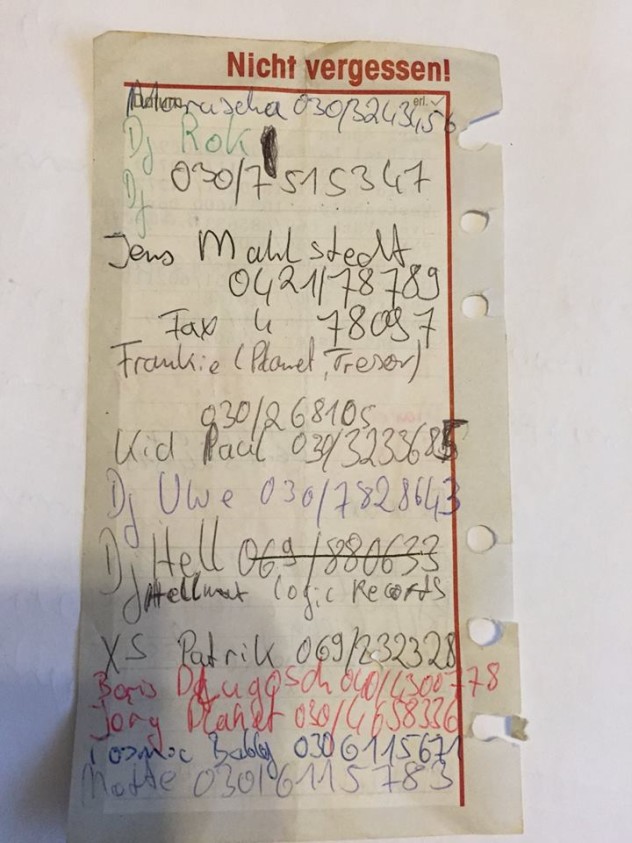 Nicht vergessen!
erl.
030/3243456
Dj Rok
030/7515347
Dj
Jens Mahlstedt
0421/78789
Fax 4 78097
Frankie (Planet, Tresor)
030/268105
Kid Paul 030/3233685
Dj Uwe 030/7828643
Dj Hell 069/880633
Hellmut Logic Records
XS Patrik 069/232328
Boris Dlugosch 040/4300778
Jony Planet 030/4658336
Cosmic Baby 0306115671
Motte 030/6115783